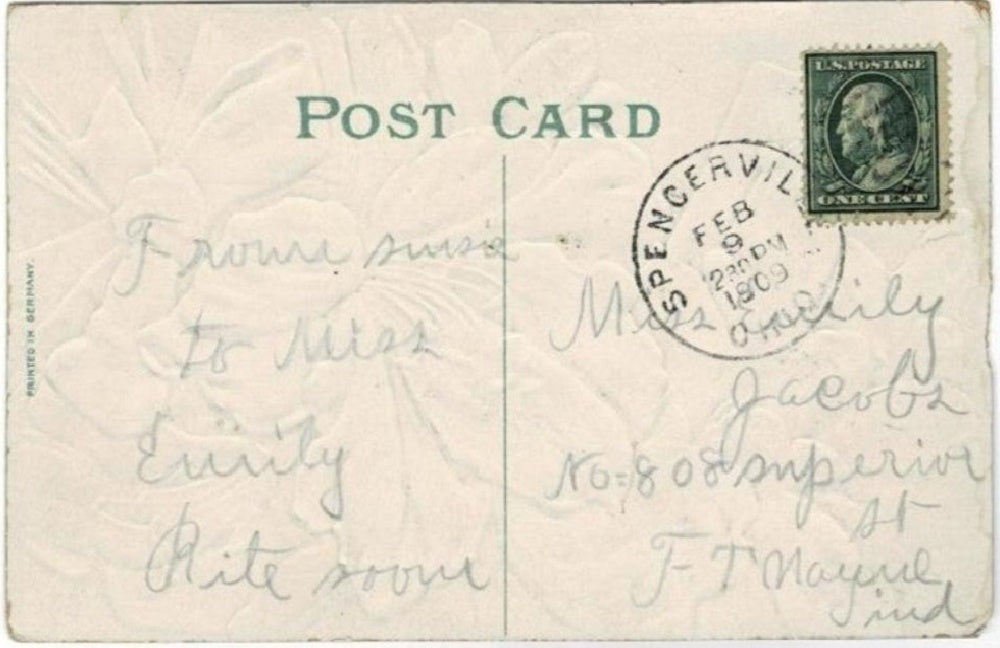 POST CARD
U.S. POSTAGE
ONE CENT
SPENCERVIL
FEB
9
230 PM
1909
OHIO
PRINTED IN GERMANY.
From
to Miss
Emily
Rite soon
Miss Emily
Jacobs
No=808 superior
st
FT Wayne
ind